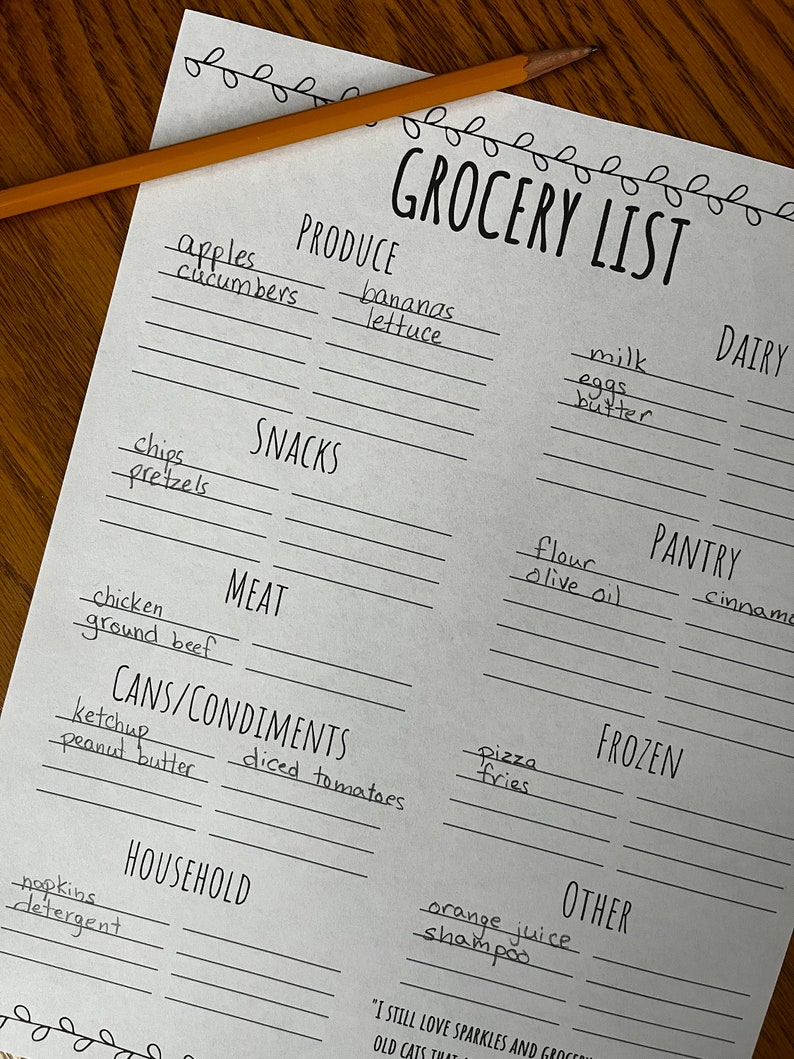 GROCERY LIST
PRODUCE
apples
cucumbers
bananas
lettuce
DAIRY
milk
eggs
butter
SNACKS
chips
pretzels
PANTRY
flour
olive oil
MEAT
chicken
ground beef
CANS/CONDIMENTS
ketchup
peanut butter
diced tomatoes
FROZEN
pizza
fries
HOUSEHOLD
napkins
detergent
OTHER
orange juice
shampoo
"I STILL LOVE SPARKLES AND
OLD CATS THAT